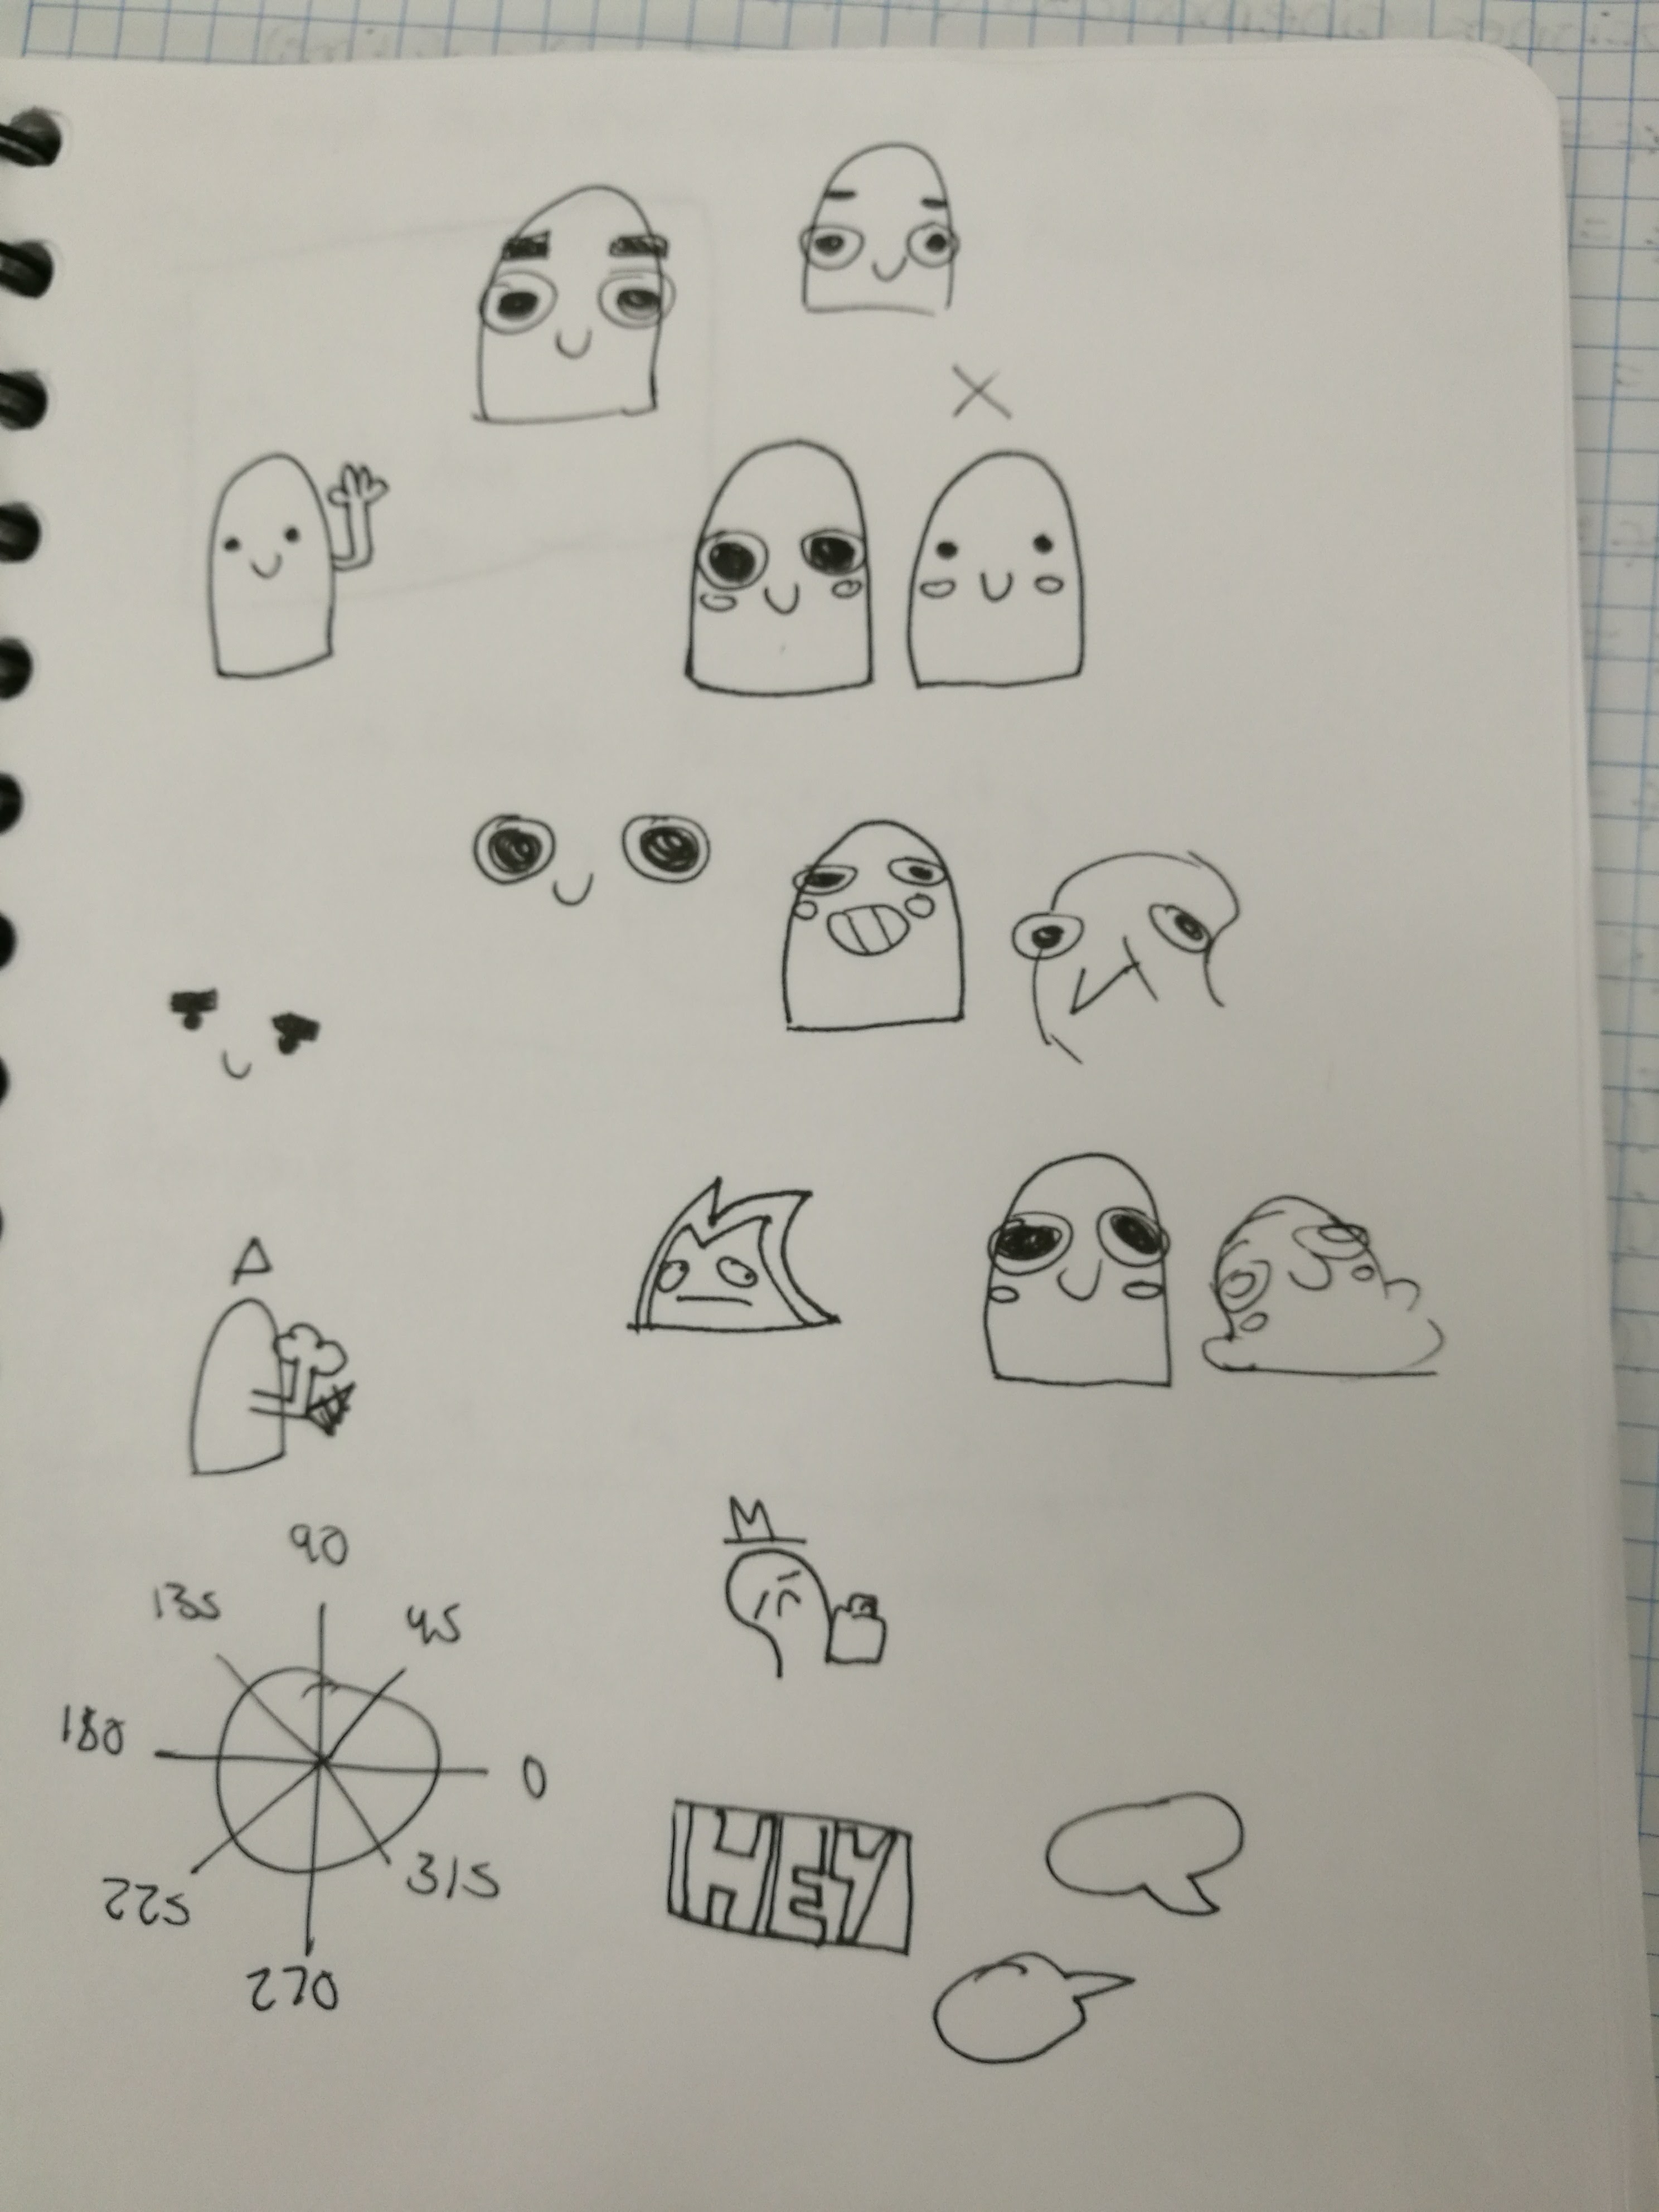 90
135
45
180
0
225
315
270
HEY